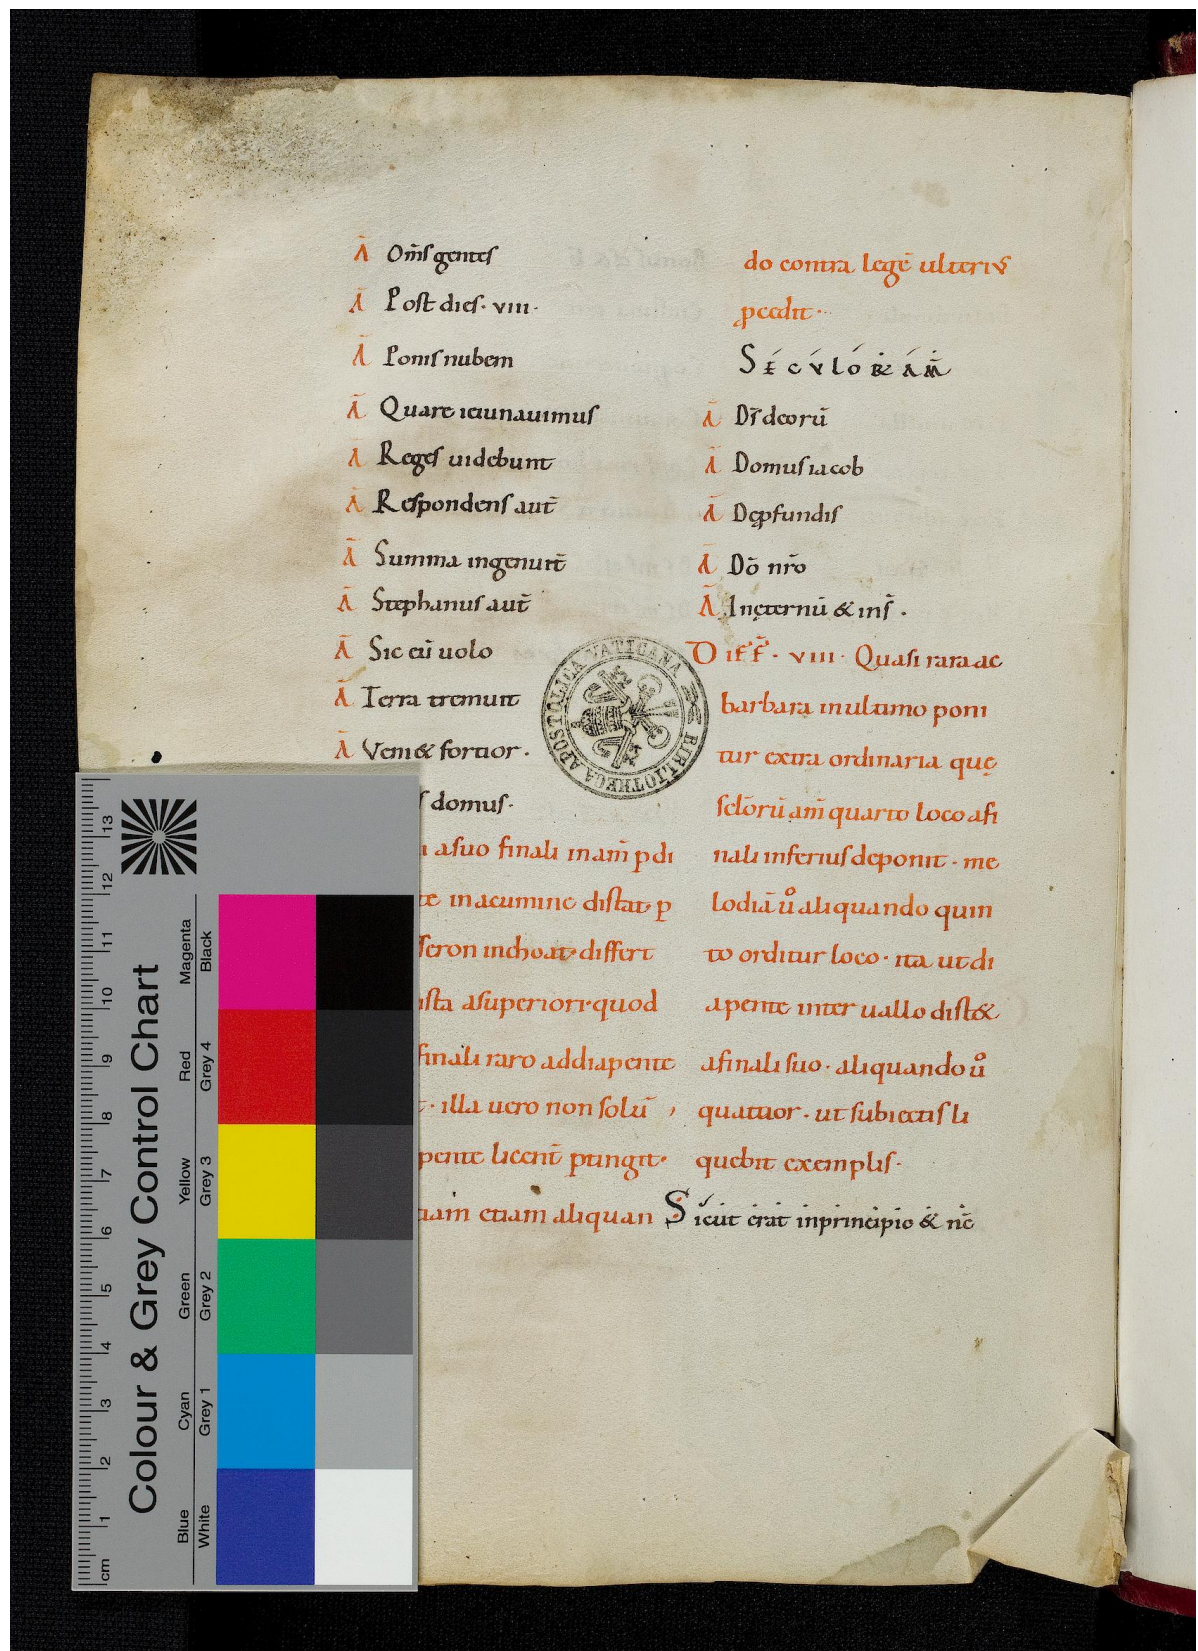 Ā Om̄s gentes
Ā Post dies · viii ·
Ā Ponis nubem
Ā Quare ieiunauimus
Ā Reges uidebunt
Ā Respondens aut̄
Ā Summa ingenuit̄
Ā Stephanus aut̄
Ā Sic eū uolo
Ā Terra tremuit
Ā Veni & fortior ·
s domus ·
i a suo finali in am̄ p di
te in acumine distat p
seron inchoat differt
ista a superiori quod
finali raro ad diapente
t · illa uero non solū
pente licent̄ ptingit ·
etiam aliquan
do contra legē ulteriꝰ
pcedit ·
Seculorum am̄
Ā Ds̄ deorū
Ā Domus iacob
Ā De pfundis
Ā Dō nr̄o
Ā In ęternū & in s̄ ·
Diff̄ · viii · Quasi rara ac
barbara in ultimo poni
tur extra ordinaria quę
sclōrū am̄ quarto loco a fi
nali inferius deponit · me
lodiā ů aliquando quin
to orditur loco · ita ut di
apente inter uallo dist&
a finali suo · aliquando ů
quatuor · ut subiectis li
quebit exemplis ·
Sicut erat in principio & nc̄
BIBLIOTHECA APOSTOLICA VATICANA
Colour & Grey Control Chart
Blue Cyan Green Yellow Red Magenta
White Grey 1 Grey 2 Grey 3 Grey 4 Black
cm 1 2 3 4 5 6 7 8 9 10 11 12 13